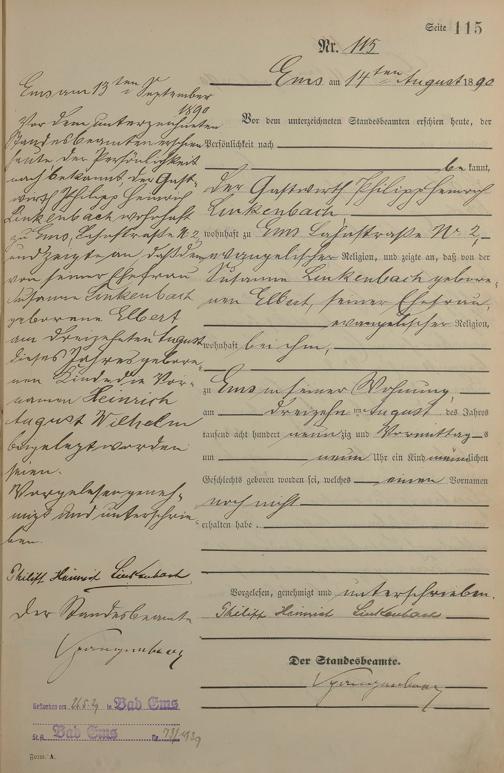 Seite 115
Nr. 115
Ems am 14ten August 1890
Vor dem unterzeichneten Standesbeamten erschien heute, der
Persönlichkeit nach
be kannt,
der Gastwirth Philipp Heinrich
Linkenbach,
wohnhaft zu Ems Lahnstraße No 2,
evangelischer Religion, und zeigte an, daß von der
Susanne Linkenbach gebore-
nen Elbert, seiner Ehefrau,
evangelischer Religion,
wohnhaft bei ihm,
zu Ems in seiner Wohnung,
am dreizehnten August des Jahres
tausend acht hundert neunzig und Vormittags
um neun Uhr ein Kind männlichen
Geschlechts geboren worden sei, welches einen Vornamen
noch nicht
erhalten habe.
Vorgelesen, genehmigt und unterschrieben.
Philipp Heinrich Linkenbach
Der Standesbeamte.
Spangenberg
Ems am 13ten September
1890
Vor dem unterzeichneten
Standesbeamten erschien
heute der Persönlichkeit
nach bekannt, der Gast-
wirth Philipp Heinrich
Linkenbach wohnhaft
zu Ems, Lahnstraße No 2
und zeigte an, daß dem
von seiner Ehefrau
Susanne Linkenbach
geborene Elbert
am dreizehnten August
dieses Jahres gebore-
nen Kinde die Vor-
namen Heinrich
August Wilhelm
beigelegt worden
seien.
Vorgelesen geneh-
migt und unterschrie-
ben.
Philipp Heinrich Linkenbach
Der Standesbeamte
Spangenberg
Gestorben am in Bad Ems
St.A. Bad Ems Nr. 73/1939
Form. A.